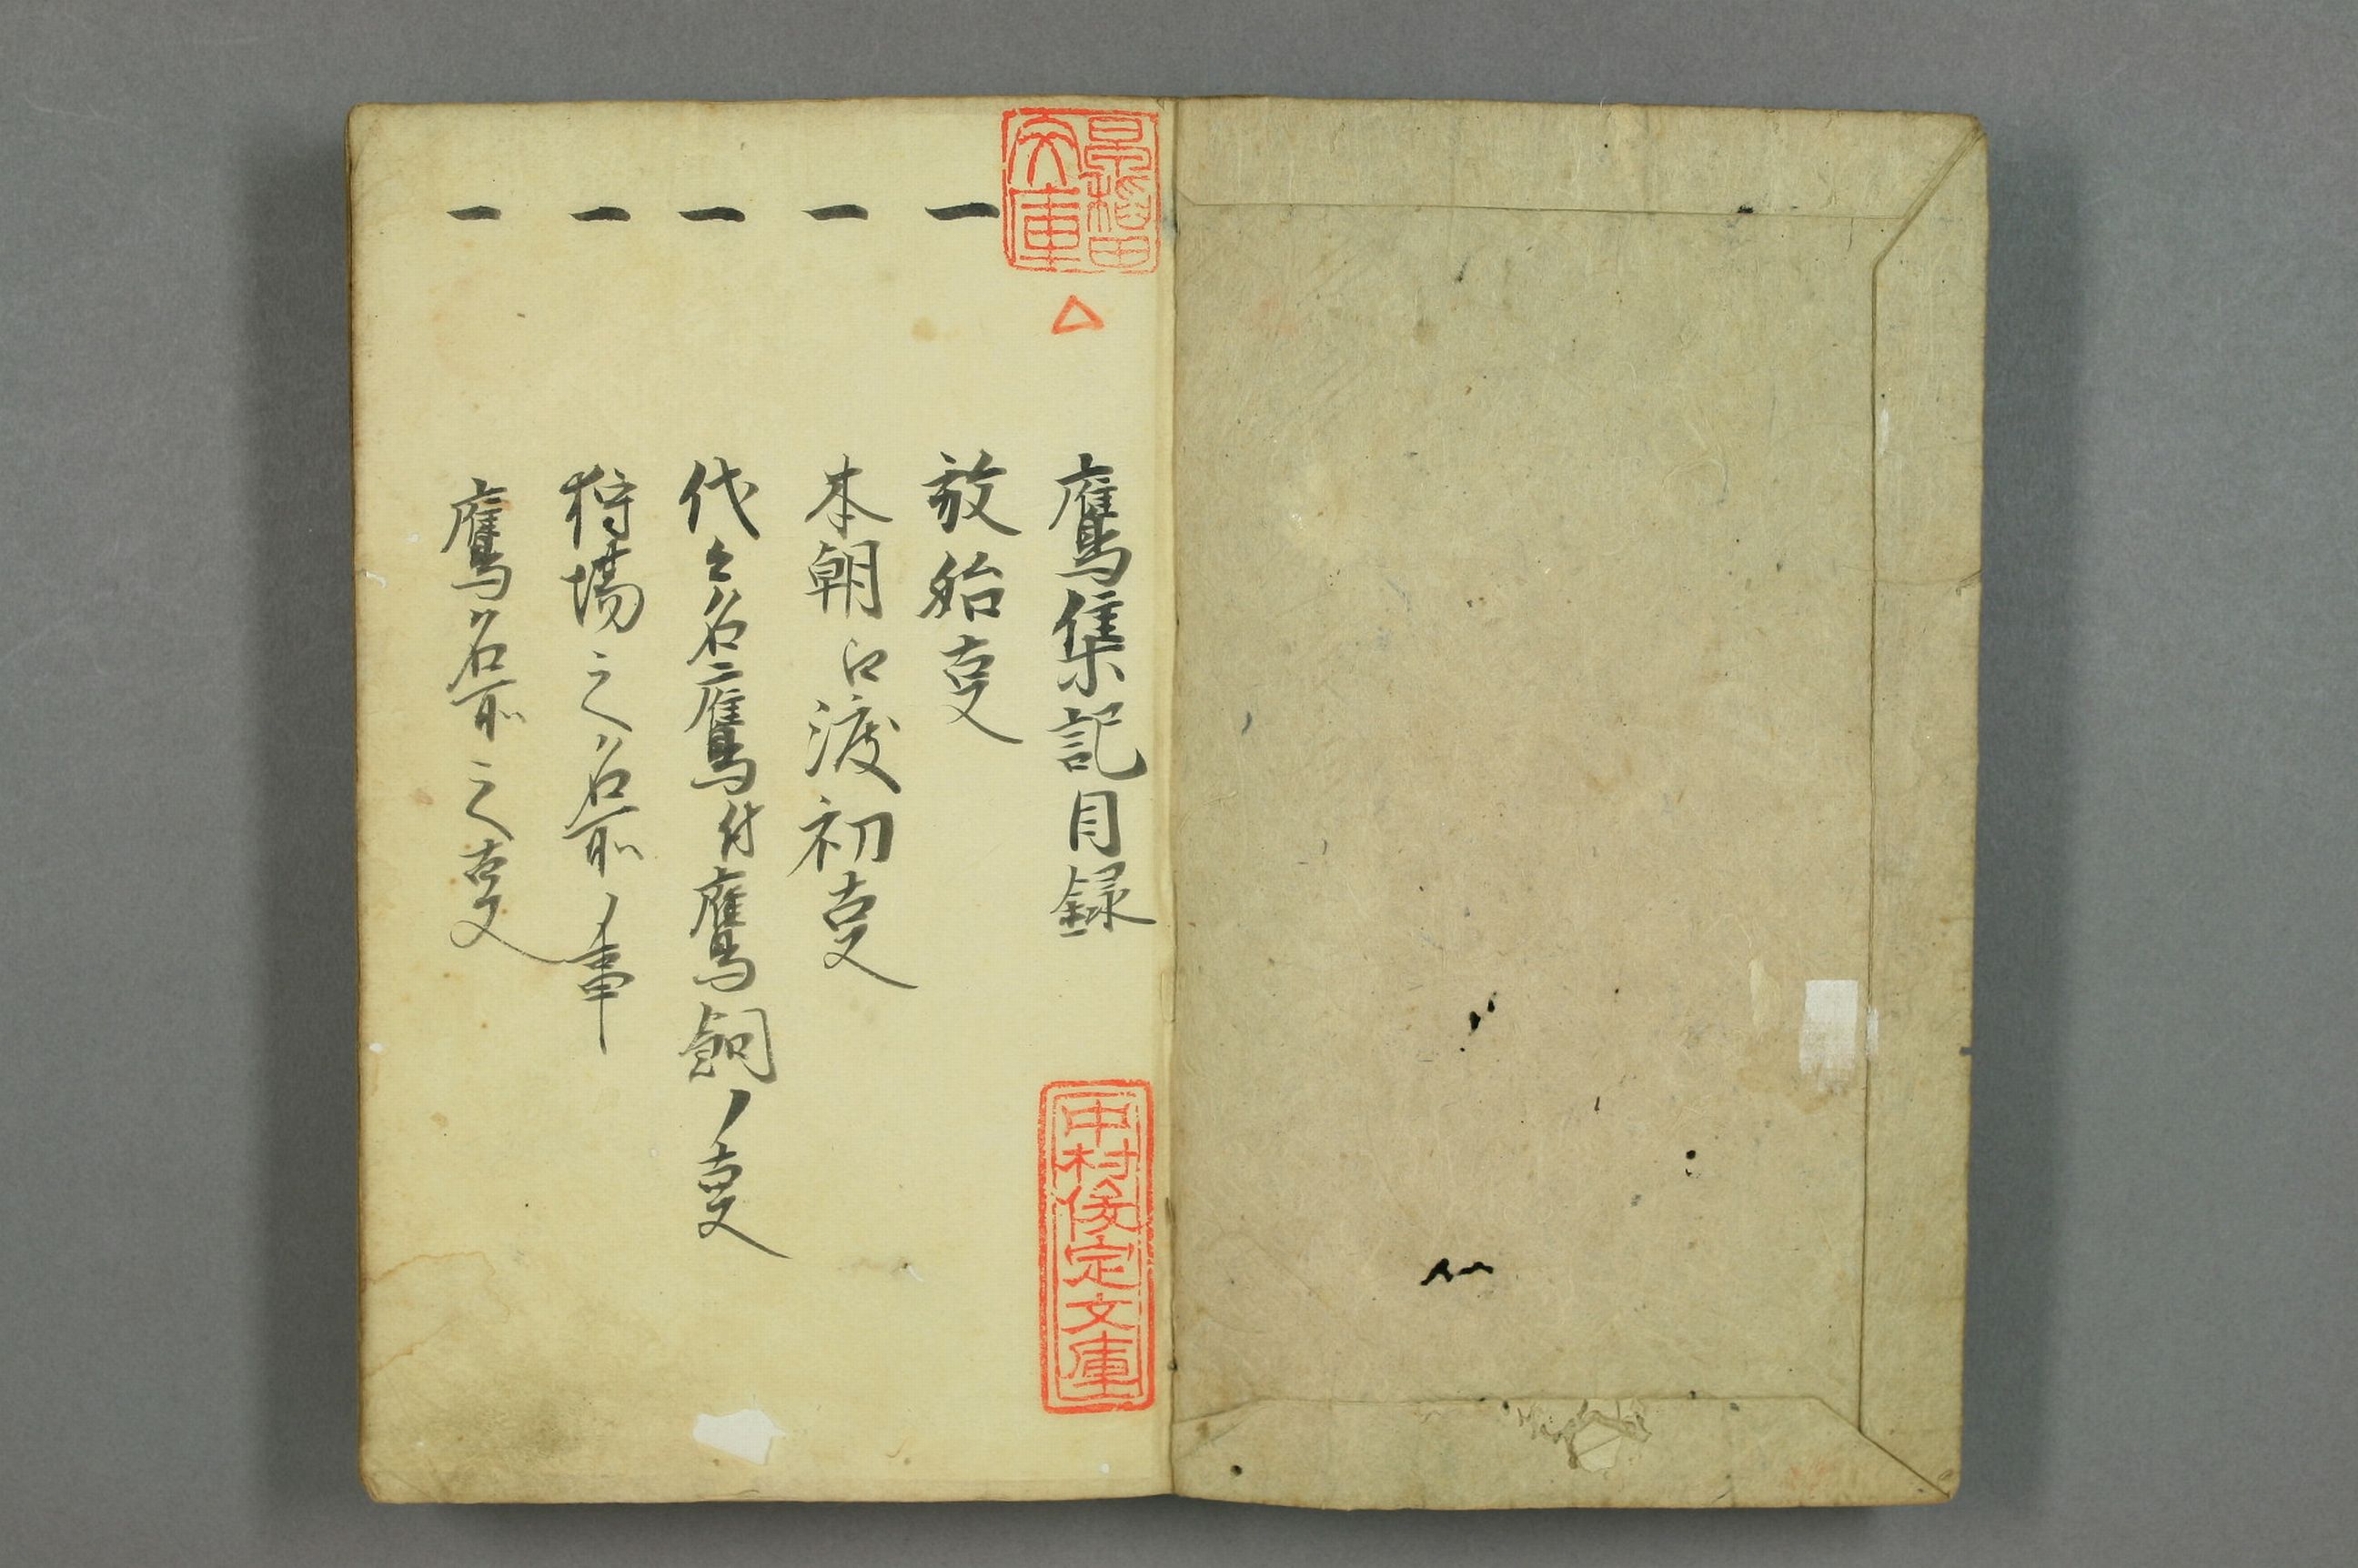 早稲田文庫
鷹集記目録
中村俊定文庫
一 放始叓
一 本朝江渡初叓
一 代々名ニ鷹付鷹飼ノ叓
一 狩場之名所ノ事
一 鷹名所之叓